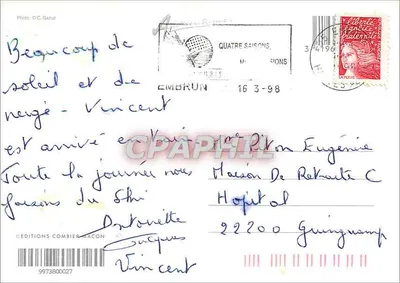 Photo: D.C. Gateur
Beaucoup de
soleil et de
neige - Vincent
est arrivé
Toute la journée nous
faisons du Ski
Antoinette
Jacques
Vincent
©EDITIONS COMBIER MACON
9973800027
QUATRE SAISONS,
EMBRUN 16 3-98
liberté
égalité
fraternité
CPAPHIL
Eugénie
Maison De Retraite C
Hopital
22200 Guingamp